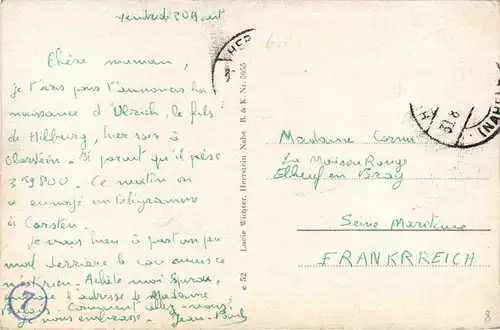 vendredi 20 Août
Chère maman,
je t'écris pour t'annoncer la
naissance d'Ulrich, le fils
de Hilburg, hier soir à
Oberstein. Il parait qu'il pèse
3K9800. Ce matin on
a envoyé un télégramme
à Carsten.
Je vais bien à part un peu
mal derrière le cou mais ce
n'est rien. Achète moi Spirou,
l'adresse de Madame
Comment allez-vous?
Je vous embrasse. Jean-Paul
7
e 52 Lucie Wichter, Herrstein/Nahe B. & K. Nr. 5055
HER
31.8
(NAHE)
Madame Cornu
La Maison Rouge
Elbeuf en Bray
Seine Maritime
FRANKRREICH
8